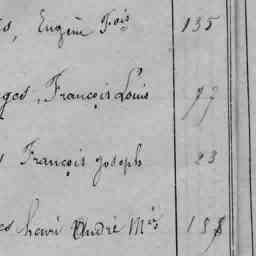 s, Eugène Fois 135
ges, François Louis 77
François Joseph 23
es henri André Mie